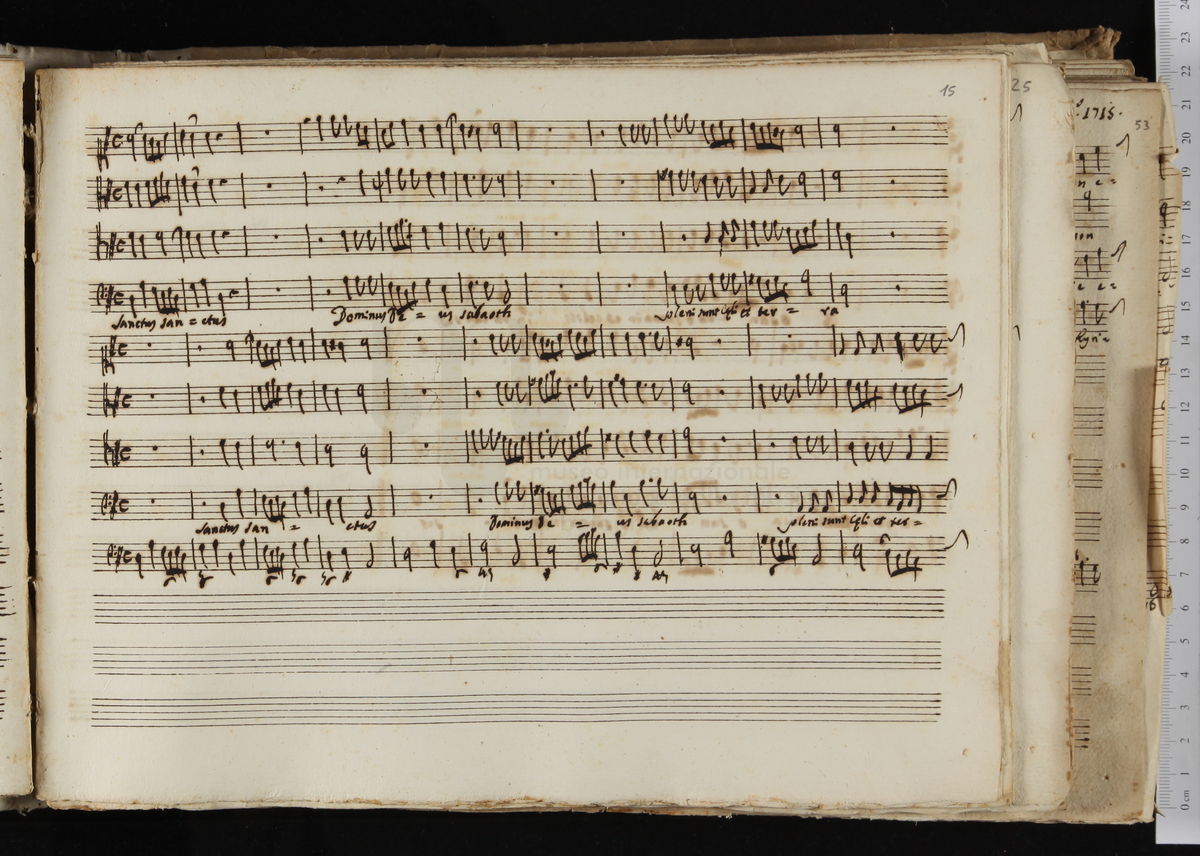 15
25
1715.
53
Sanctus San = ctus Dominus De = us sabaoth pleni sunt cęli et ter = ra
Sanctus San = ctus Dominus De = us sabaoth pleni sunt cęli et ter =
museo internazionale
n e =
son
e e =
Kyri =
24
23
22
21
20
19
18
17
16
15
14
13
12
11
10
9
8
7
6
5
4
3
2
1
0 cm